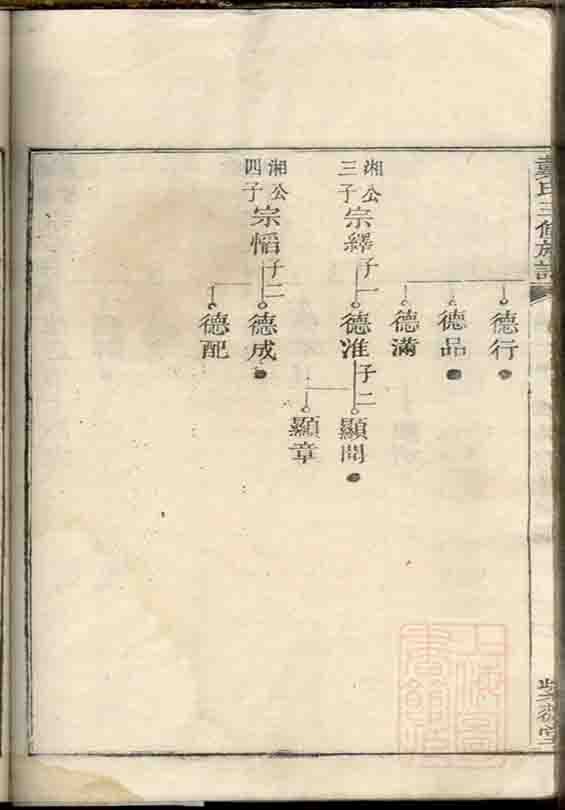 氏三修族譜
德行
德品
德滿
湘公三子
宗繹
子一
德准
子二
顯問
顯章
湘公四子
宗慆
子二
德成
德配